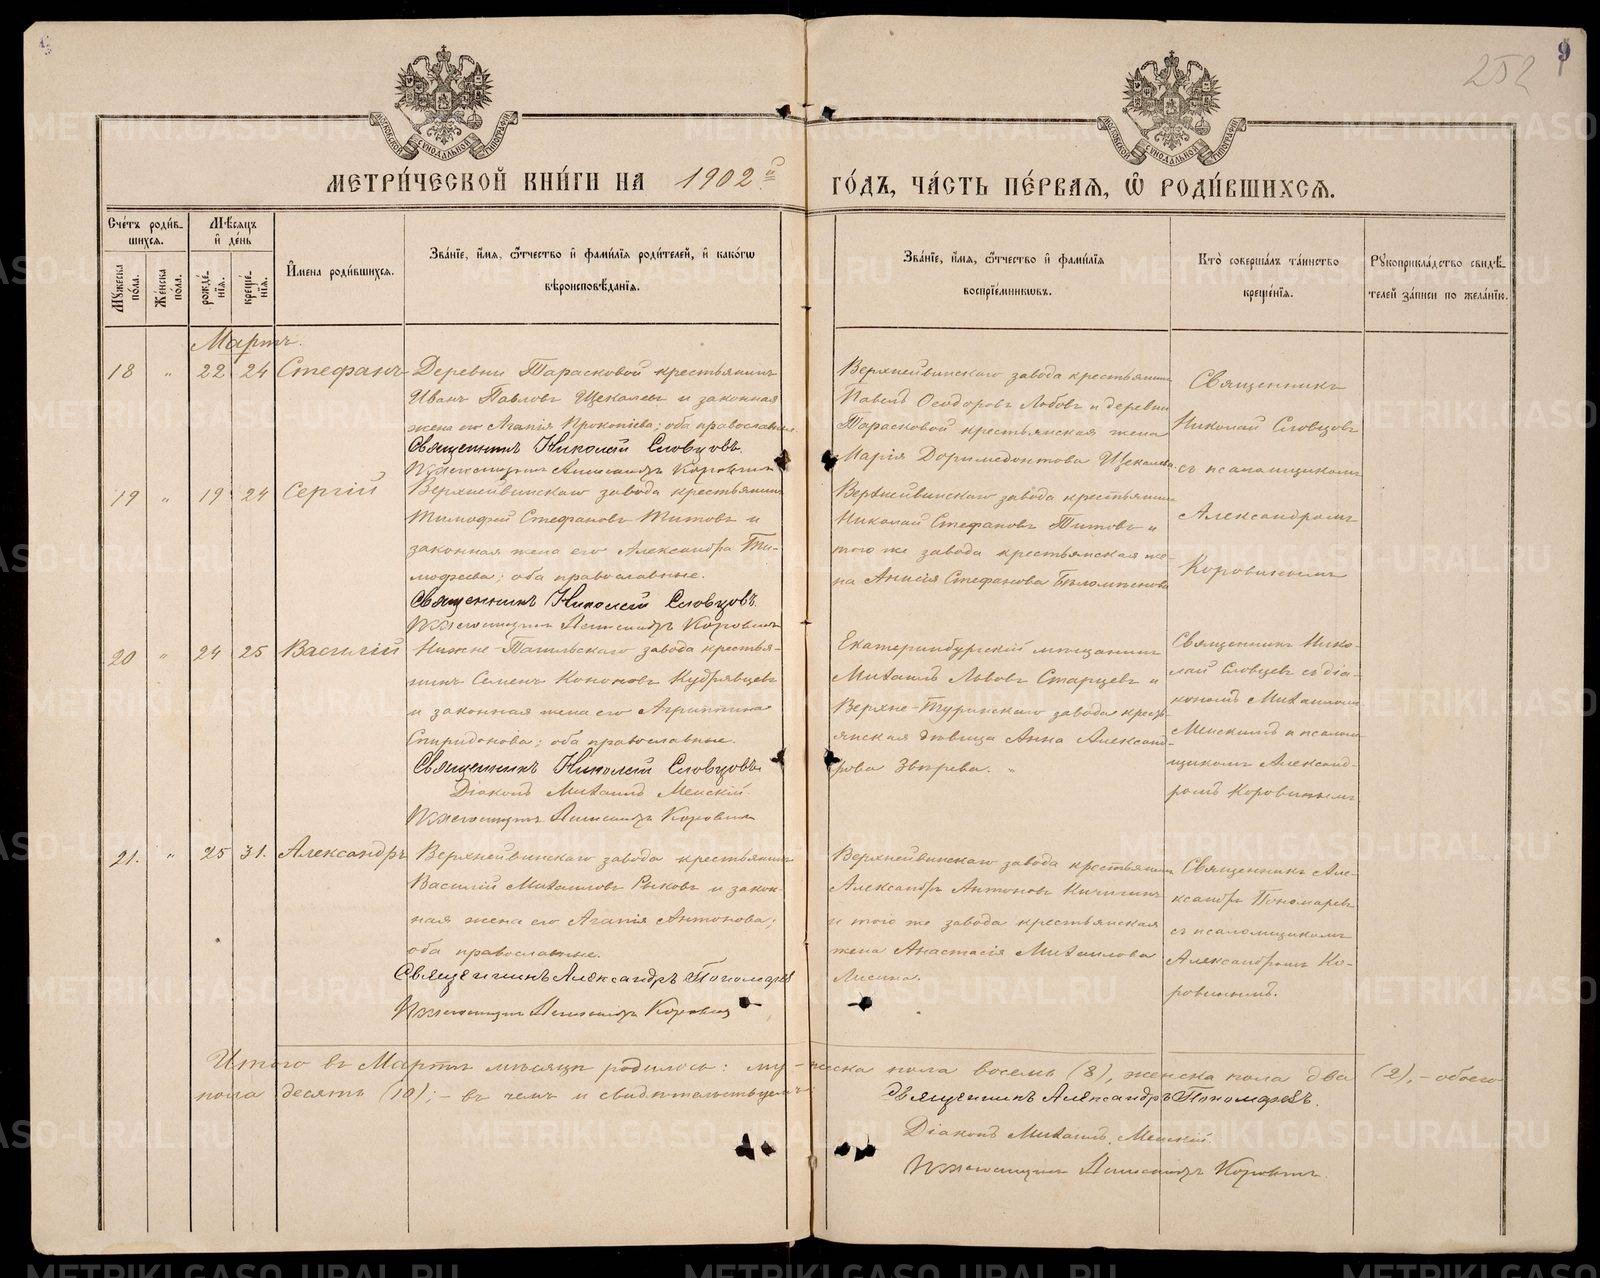 252
9
МОСКОВСКОЙ СѴНОДАЛЬНОЙ ТИПОГРАФІИ
МОСКОВСКОЙ СѴНОДАЛЬНОЙ ТИПОГРАФІИ
МЕТРИ́ЧЕСКОЙ КНИ́ГИ НА 1902й
ГО́ДЪ, ЧА́СТЬ ПЕ́РВАЯ, Ѽ РОДИ́ВШИХСѦ.
Сче́тъ роди́в-
шихсѧ.
Мѣсѧцъ
и҆ де́нь
Мꙋжеска по́ла.
Же́нска по́ла.
рожде́-
нїѧ.
креще́-
нїѧ.
И҆мена роди́вшихсѧ.
Зва́нїе, и҆́мѧ, ѻ҆́тчество и҆ фами́лїѧ роди́телей, и҆ како́гѡ
вѣроисповѣ́данїѧ.
Зва́нїе, и҆́мѧ, ѻ҆́тчество и҆ фами́лїѧ
воспрїе́мникѡвъ.
Кто̀ соверша́лъ та́инство
креще́нїѧ.
Рꙋкоприкла́дство свидѣ́-
телей за́писи по жела́нїю.
Мартъ.
18 " 22 24 Стефанъ
Деревни Тарасковой крестьянинъ
Иванъ Павловъ Щекалевъ и законная
жена его Агапія Прокопіева; оба православные.
Священникъ Николай Словцовъ.
Псаломщикъ Александръ Коровинъ
Верхнейвинскаго завода крестьянинъ
Павелъ Ѳеодоровъ Любовъ и деревни
Тарасковой крестьянская жена
Марія Доримедонтова Щекалева
Священникъ
Николай Словцовъ
съ псаломщикомъ
Александромъ
Коровинымъ
19 " 19 24 Сергій
Верхнейвинскаго завода крестьянинъ
Тимофей Стефановъ Титовъ и
законная жена его Александра Ти-
мофеева; оба православные.
Священникъ Николай Словцовъ
Псаломщикъ Александръ Коровинъ
Верхнейвинскаго завода крестьянинъ
Николай Стефановъ Титовъ и
того же завода крестьянская же-
на Анисія Стефанова
20 " 24 25 Василій
Нижне-Тагильскаго завода крестья-
нинъ Семенъ Кононовъ Кудрявцевъ
и законная жена его Агриппина
Спиридонова; оба православные.
Священникъ Николай Словцовъ
Діаконъ Михаилъ Менскій.
Псаломщикъ Александръ Коровинъ
Екатеринбургскій мѣщанинъ
Михаилъ Львовъ Старцевъ и
Верхне-Туринскаго завода кресть-
янская дѣвица Анна Александ-
рова Звѣрева. "
Священникъ Нико-
лай Словцовъ съ діа-
кономъ Михаиломъ
Менскимъ и псалом-
щикомъ Александ-
ромъ Коровинымъ
21. " 25 31. Александръ
Верхнейвинскаго завода крестьянинъ
Василій Михаиловъ Рыковъ и закон-
ная жена его Агапія Антонова;
оба православные.
Священникъ Александръ Пономаревъ
Псаломщикъ Александръ Коровинъ
Верхнейвинскаго завода крестьянинъ
Александръ Антоновъ Кичигинъ
и того же завода крестьянская
жена Анастасія Михаилова
Лисина.
Священникъ Але-
ксандръ Пономаревъ
съ псаломщикомъ
Александромъ Ко-
ровинымъ.
Итого въ Мартѣ мѣсяцѣ родилось: мужеска пола восемь (8), женска пола два (2), - обоего
пола десять (10); - въ чемъ и свидѣтельствуемъ:
Священникъ Александръ Пономаревъ.
Діаконъ Михаилъ Менскій.
Псаломщикъ Александръ Коровинъ.
METRIKI.GASO-URAL.RU